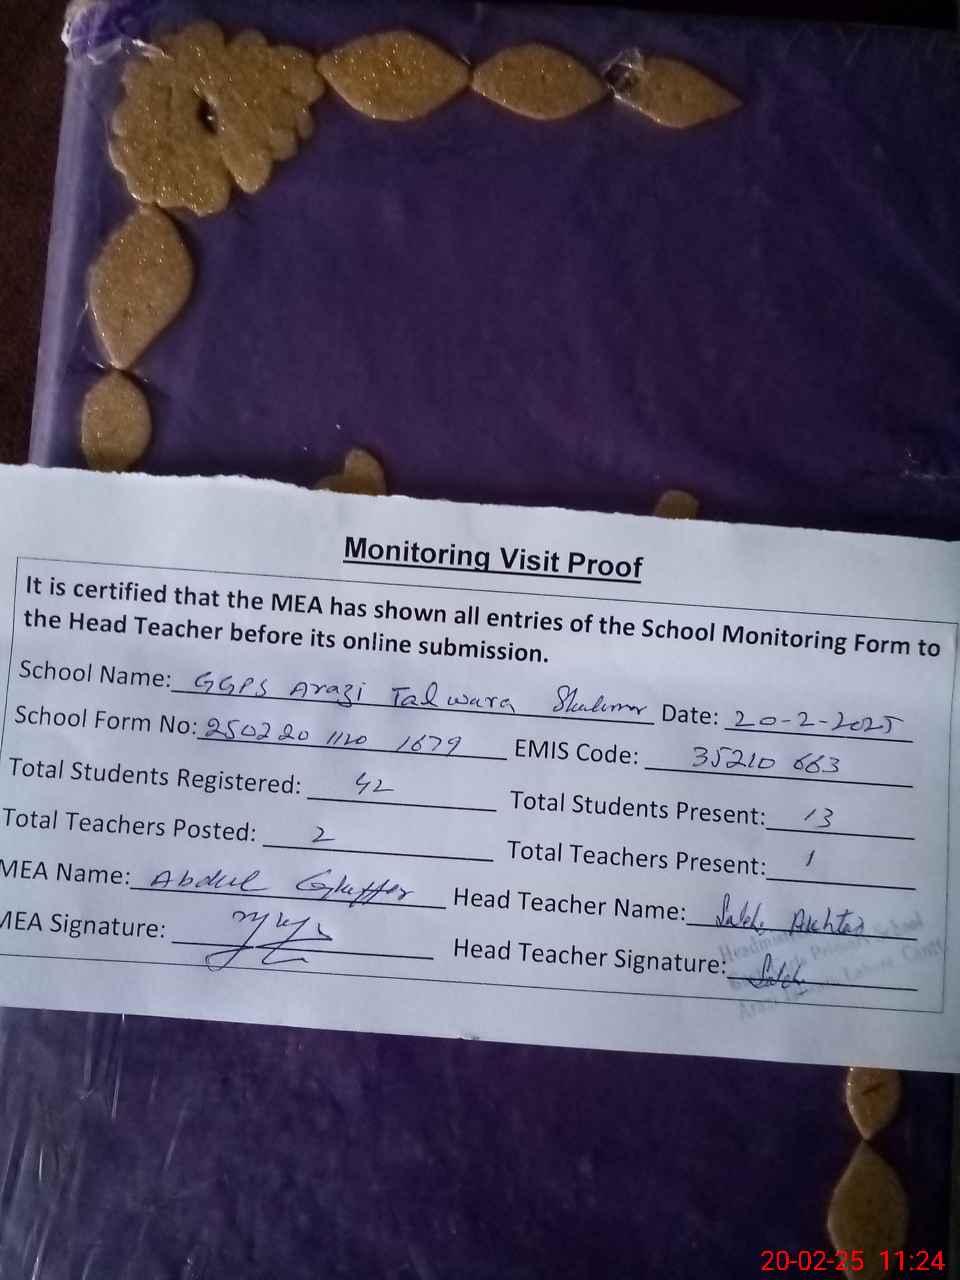 Monitoring Visit Proof
It is certified that the MEA has shown all entries of the School Monitoring Form to
the Head Teacher before its online submission.
School Name: GGPS Arazi Talwara Shalimar Date: 20-2-2025
School Form No: 250220 1120 1679 EMIS Code: 35210 663
Total Students Registered: 42 Total Students Present: 13
Total Teachers Posted: 2 Total Teachers Present: 1
MEA Name: Abdul Ghaffar Head Teacher Name: Akhtar
MEA Signature: Head Teacher Signature:
Primary School
Lahore Cantt
20-02-25 11:24